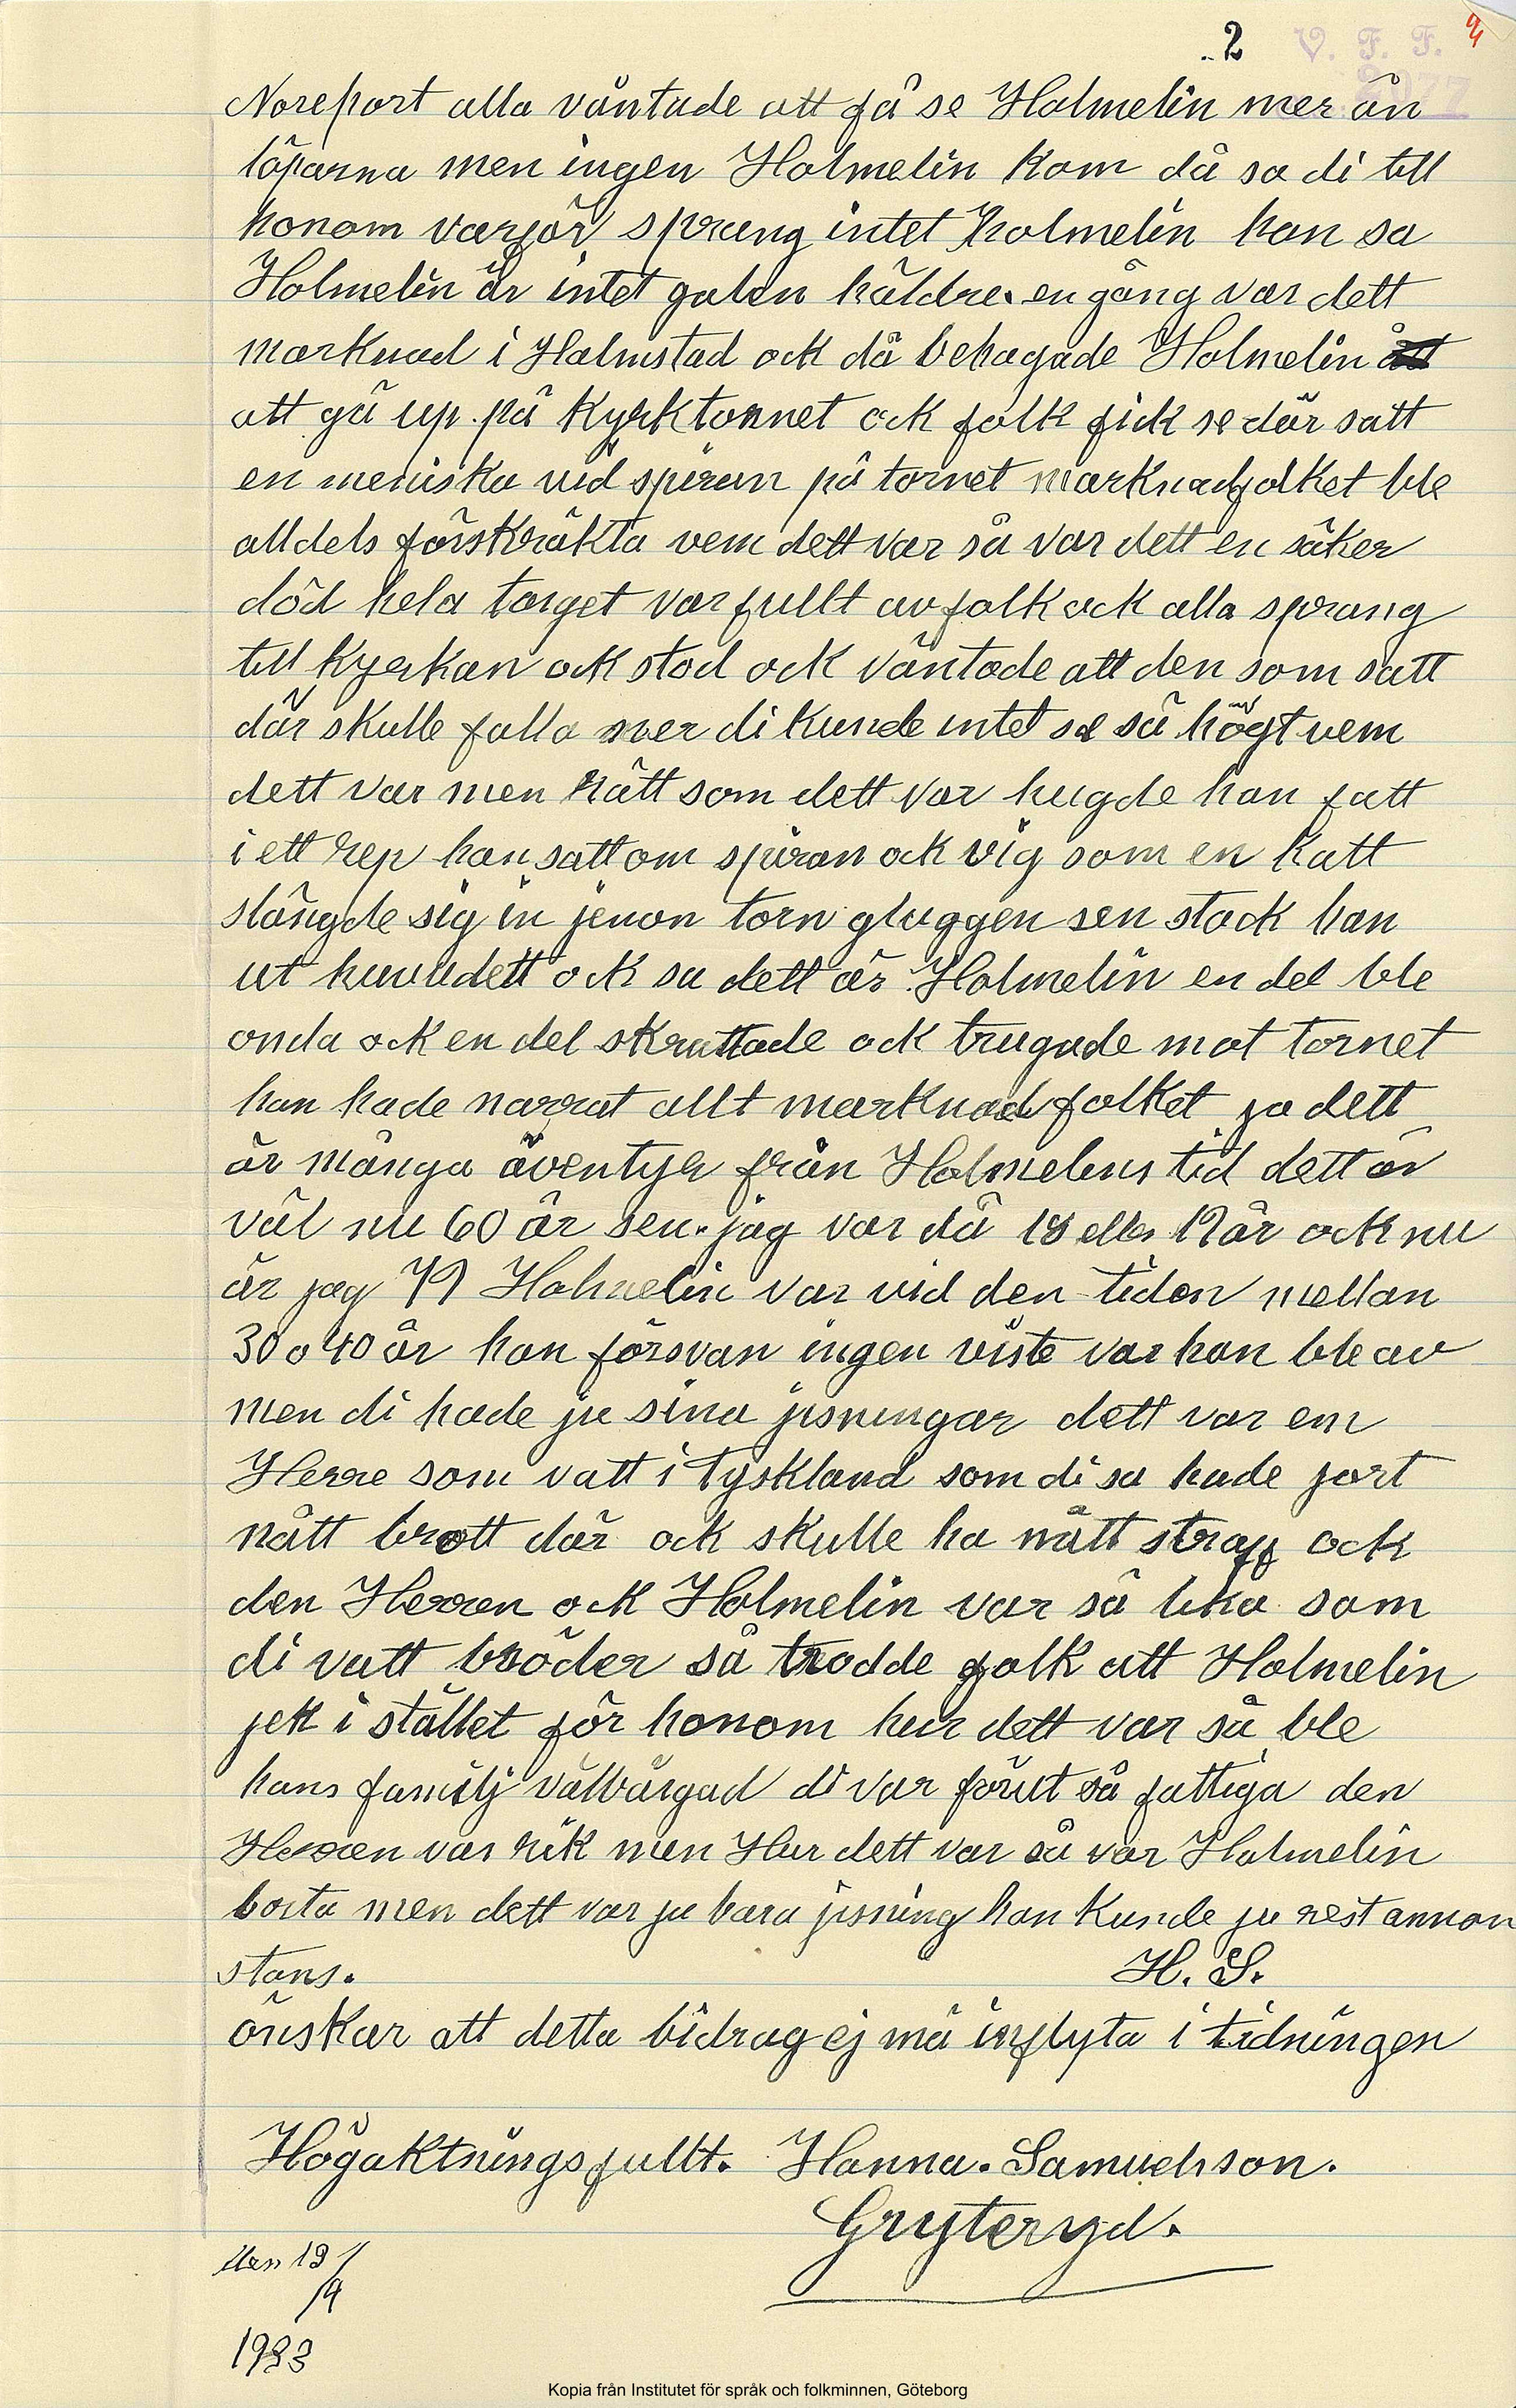 2 V. F. F. 4
2077
Noreport alla väntade att få se Holmelin mer än
löparna men ingen Holmelin kom då sa di till
honom varför sprang intet Holmelin han sa
Holmelin är intet galen häldre. en gång var dett
marknad i Halmstad ock då behagade Holmelin
att gå up på kyrktornet ock folk fick se där satt
en meniska vid spiran på tornet marknadfolket ble
alldels förskräkta vem dett var så var dett en säker
död hela torget var fullt av folk ock alla sprang
till kyrkan ock stod ock väntade att den som satt
där skulle falla mer di kunde intet se så högt vem
dett var men rätt som dett var hugde han fatt
i ett rep han satt om spiran ock vig som en katt
slängde sig in jenon torn gluggen sen stack han
ut huvudett ock sa dett är Holmelin en del ble
onda ock en del skrattade ock trugade mot tornet
han hade narrat allt marknadsfolket ja dett
är många äventyr från Holmelins tid dett är
väl nu 60 år sen. jag var då 18 eller 19 år ock nu
är jag 79 Holmelin var vid den tiden mellan
30 o 40 år han försvan ingen viste var han ble av
men di hade ju sina jisningar dett var en
Herre som vatt i Tyskland som di sa hade jort
nått brott där ock skulle ha nått straff ock
den Herren ock Holmelin var så lika som
di vatt bröder så trodde folk att Holmelin
jek i stället för honom hur dett var så ble
hans familj välbärgad di var förut så fattiga den
Herren var rik men Hur dett var så var Holmelin
borta men dett var ju bara jisning han kunde ju rest annon
stans. H. S.
önskar att detta bidrag ej må inflyta i tidningen
Högaktningsfullt. Hanna. Samuelsson.
Gryteryd.
den 19/
/9
1933
Kopia från Institutet för språk och folkminnen, Göteborg